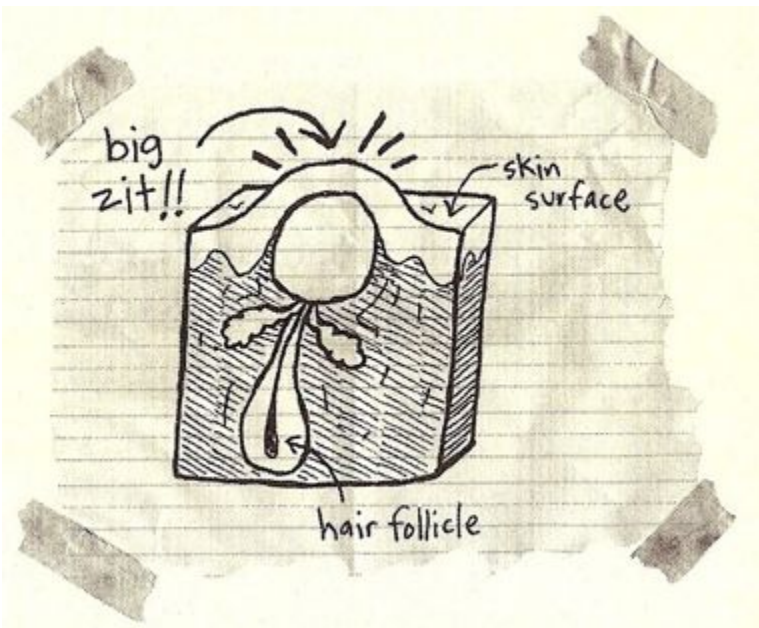 big
zit!!
skin
surface
hair follicle